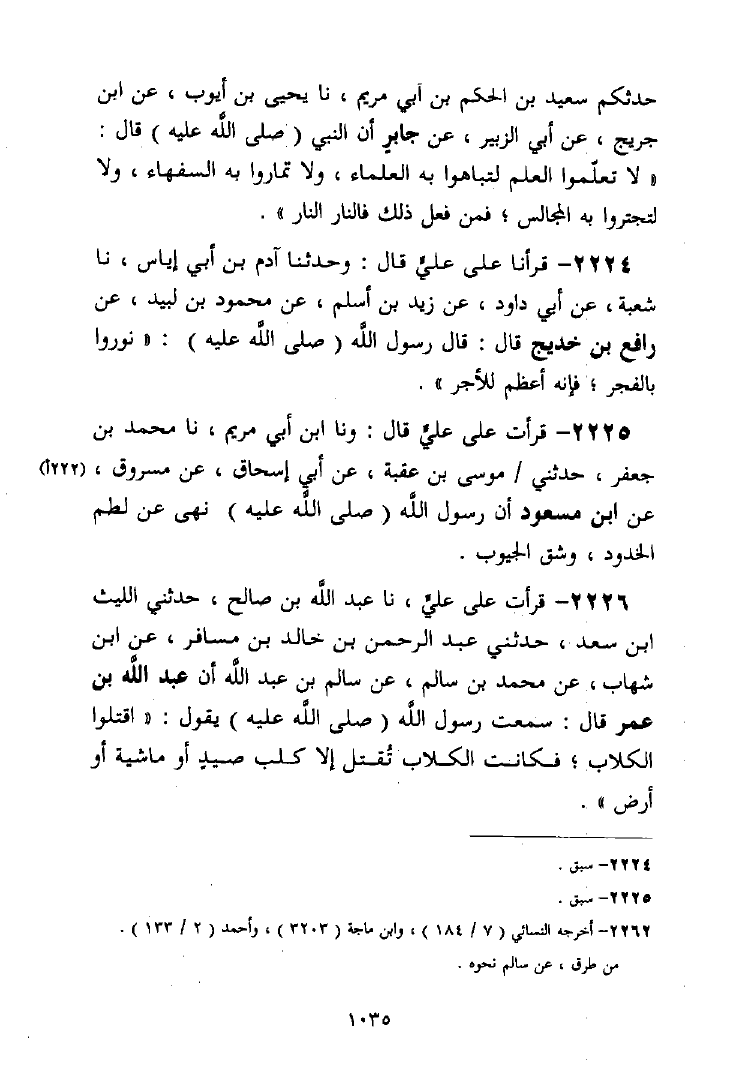 حدثكم سعيد بن الحكم بن أبي مريم ، نا يحيى بن أيوب ، عن ابن
جريج ، عن أبي الزبير ، عن جابرٍ أن النبي ( صلى اللَّه عليه ) قال :
« لا تعلّموا العلم لتباهوا به العلماء ، ولا تماروا به السفهاء ، ولا
لتجتروا به المجالس ؛ فمن فعل ذلك فالنار النار » .
٢٢٢٤- قرأنا على عليٍّ قال : وحدثنا آدم بن أبي إياس ، نا
شعبة ، عن أبي داود ، عن زيد بن أسلم ، عن محمود بن لبيد ، عن
رافع بن خديج قال : قال رسول اللَّه ( صلى اللَّه عليه ) : « نوروا
بالفجر ؛ فإنه أعظم للأجر » .
٢٢٢٥- قرأت على عليٍّ قال : ونا ابن أبي مريم ، نا محمد بن
جعفر ، حدثني / موسى بن عقبة ، عن أبي إسحاق ، عن مسروق ، (٢٢٢أ)
عن ابن مسعود أن رسول اللَّه ( صلى اللَّه عليه ) نهى عن لطم
الخدود ، وشق الجيوب .
٢٢٢٦- قرأت على عليٍّ ، نا عبد اللَّه بن صالح ، حدثني الليث
ابن سعد ، حدثني عبد الرحمن بن خالد بن مسافر ، عن ابن
شهاب ، عن محمد بن سالم ، عن سالم بن عبد اللَّه أن عبد اللَّه بن
عمر قال : سمعت رسول اللَّه ( صلى اللَّه عليه ) يقول : « اقتلوا
الكلاب ؛ فكانت الكلاب تُقتل إلا كلب صيدٍ أو ماشية أو
أرض » .
٢٢٢٤- سبق .
٢٢٢٥- سبق .
٢٢٦٢- أخرجه النسائي ( ٧ / ١٨٤ ) ، وابن ماجة ( ٣٢٠٣ ) ، وأحمد ( ٢ / ١٣٣ ) .
من طرق ، عن سالم نحوه .
١٠٣٥